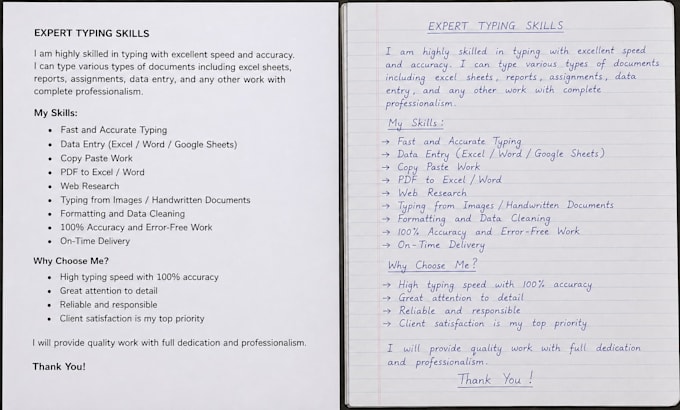 EXPERT TYPING SKILLS
I am highly skilled in typing with excellent speed and accuracy.
I can type various types of documents including excel sheets,
reports, assignments, data entry, and any other work with
complete professionalism.
My Skills:
• Fast and Accurate Typing
• Data Entry (Excel / Word / Google Sheets)
• Copy Paste Work
• PDF to Excel / Word
• Web Research
• Typing from Images / Handwritten Documents
• Formatting and Data Cleaning
• 100% Accuracy and Error-Free Work
• On-Time Delivery
Why Choose Me?
• High typing speed with 100% accuracy
• Great attention to detail
• Reliable and responsible
• Client satisfaction is my top priority
I will provide quality work with full dedication and professionalism.
Thank You!
EXPERT TYPING SKILLS
I am highly skilled in typing with excellent speed
and accuracy. I can type various types of documents
including excel sheets, reports, assignments, data
entry, and any other work with complete
professionalism.
My Skills:
→ Fast and Accurate Typing
→ Data Entry (Excel / Word / Google Sheets)
→ Copy Paste Work
→ PDF to Excel / Word
→ Web Research
→ Typing from Images / Handwritten Documents
→ Formatting and Data Cleaning
→ 100% Accuracy and Error-Free Work
→ On-Time Delivery
Why Choose Me?
→ High typing speed with 100% accuracy
→ Great attention to detail
→ Reliable and responsible
→ Client satisfaction is my top priority
I will provide quality work with full dedication
and professionalism.
Thank You!